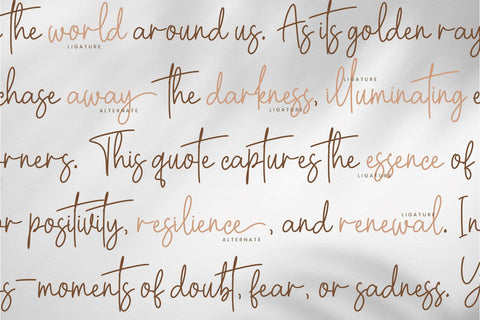 the world around us. As its golden ray
LIGATURE
LIGATURE
chase away the darkness, illuminating e
ALTERNATE
LIGATURE
rners. This quote captures the essence of
LIGATURE
LIGATURE
or positivity, resilience, and renewal. In
ALTERNATE
s-moments of doubt, fear, or sadness. Y